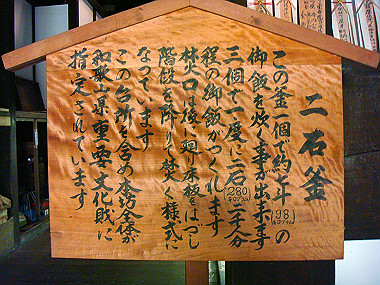 二石釜
この釜一個で約七斗(98キログラム)の
御飯を炊く事が出来ます
三個で一度に二石(280キログラム)二千人分
程の御飯がつくれます
焚口は後に廻り床板をはづし
階段を降りて焚く様式に
なっています
この台所を含め本坊全体が
和歌山県重要文化財に
指定されています